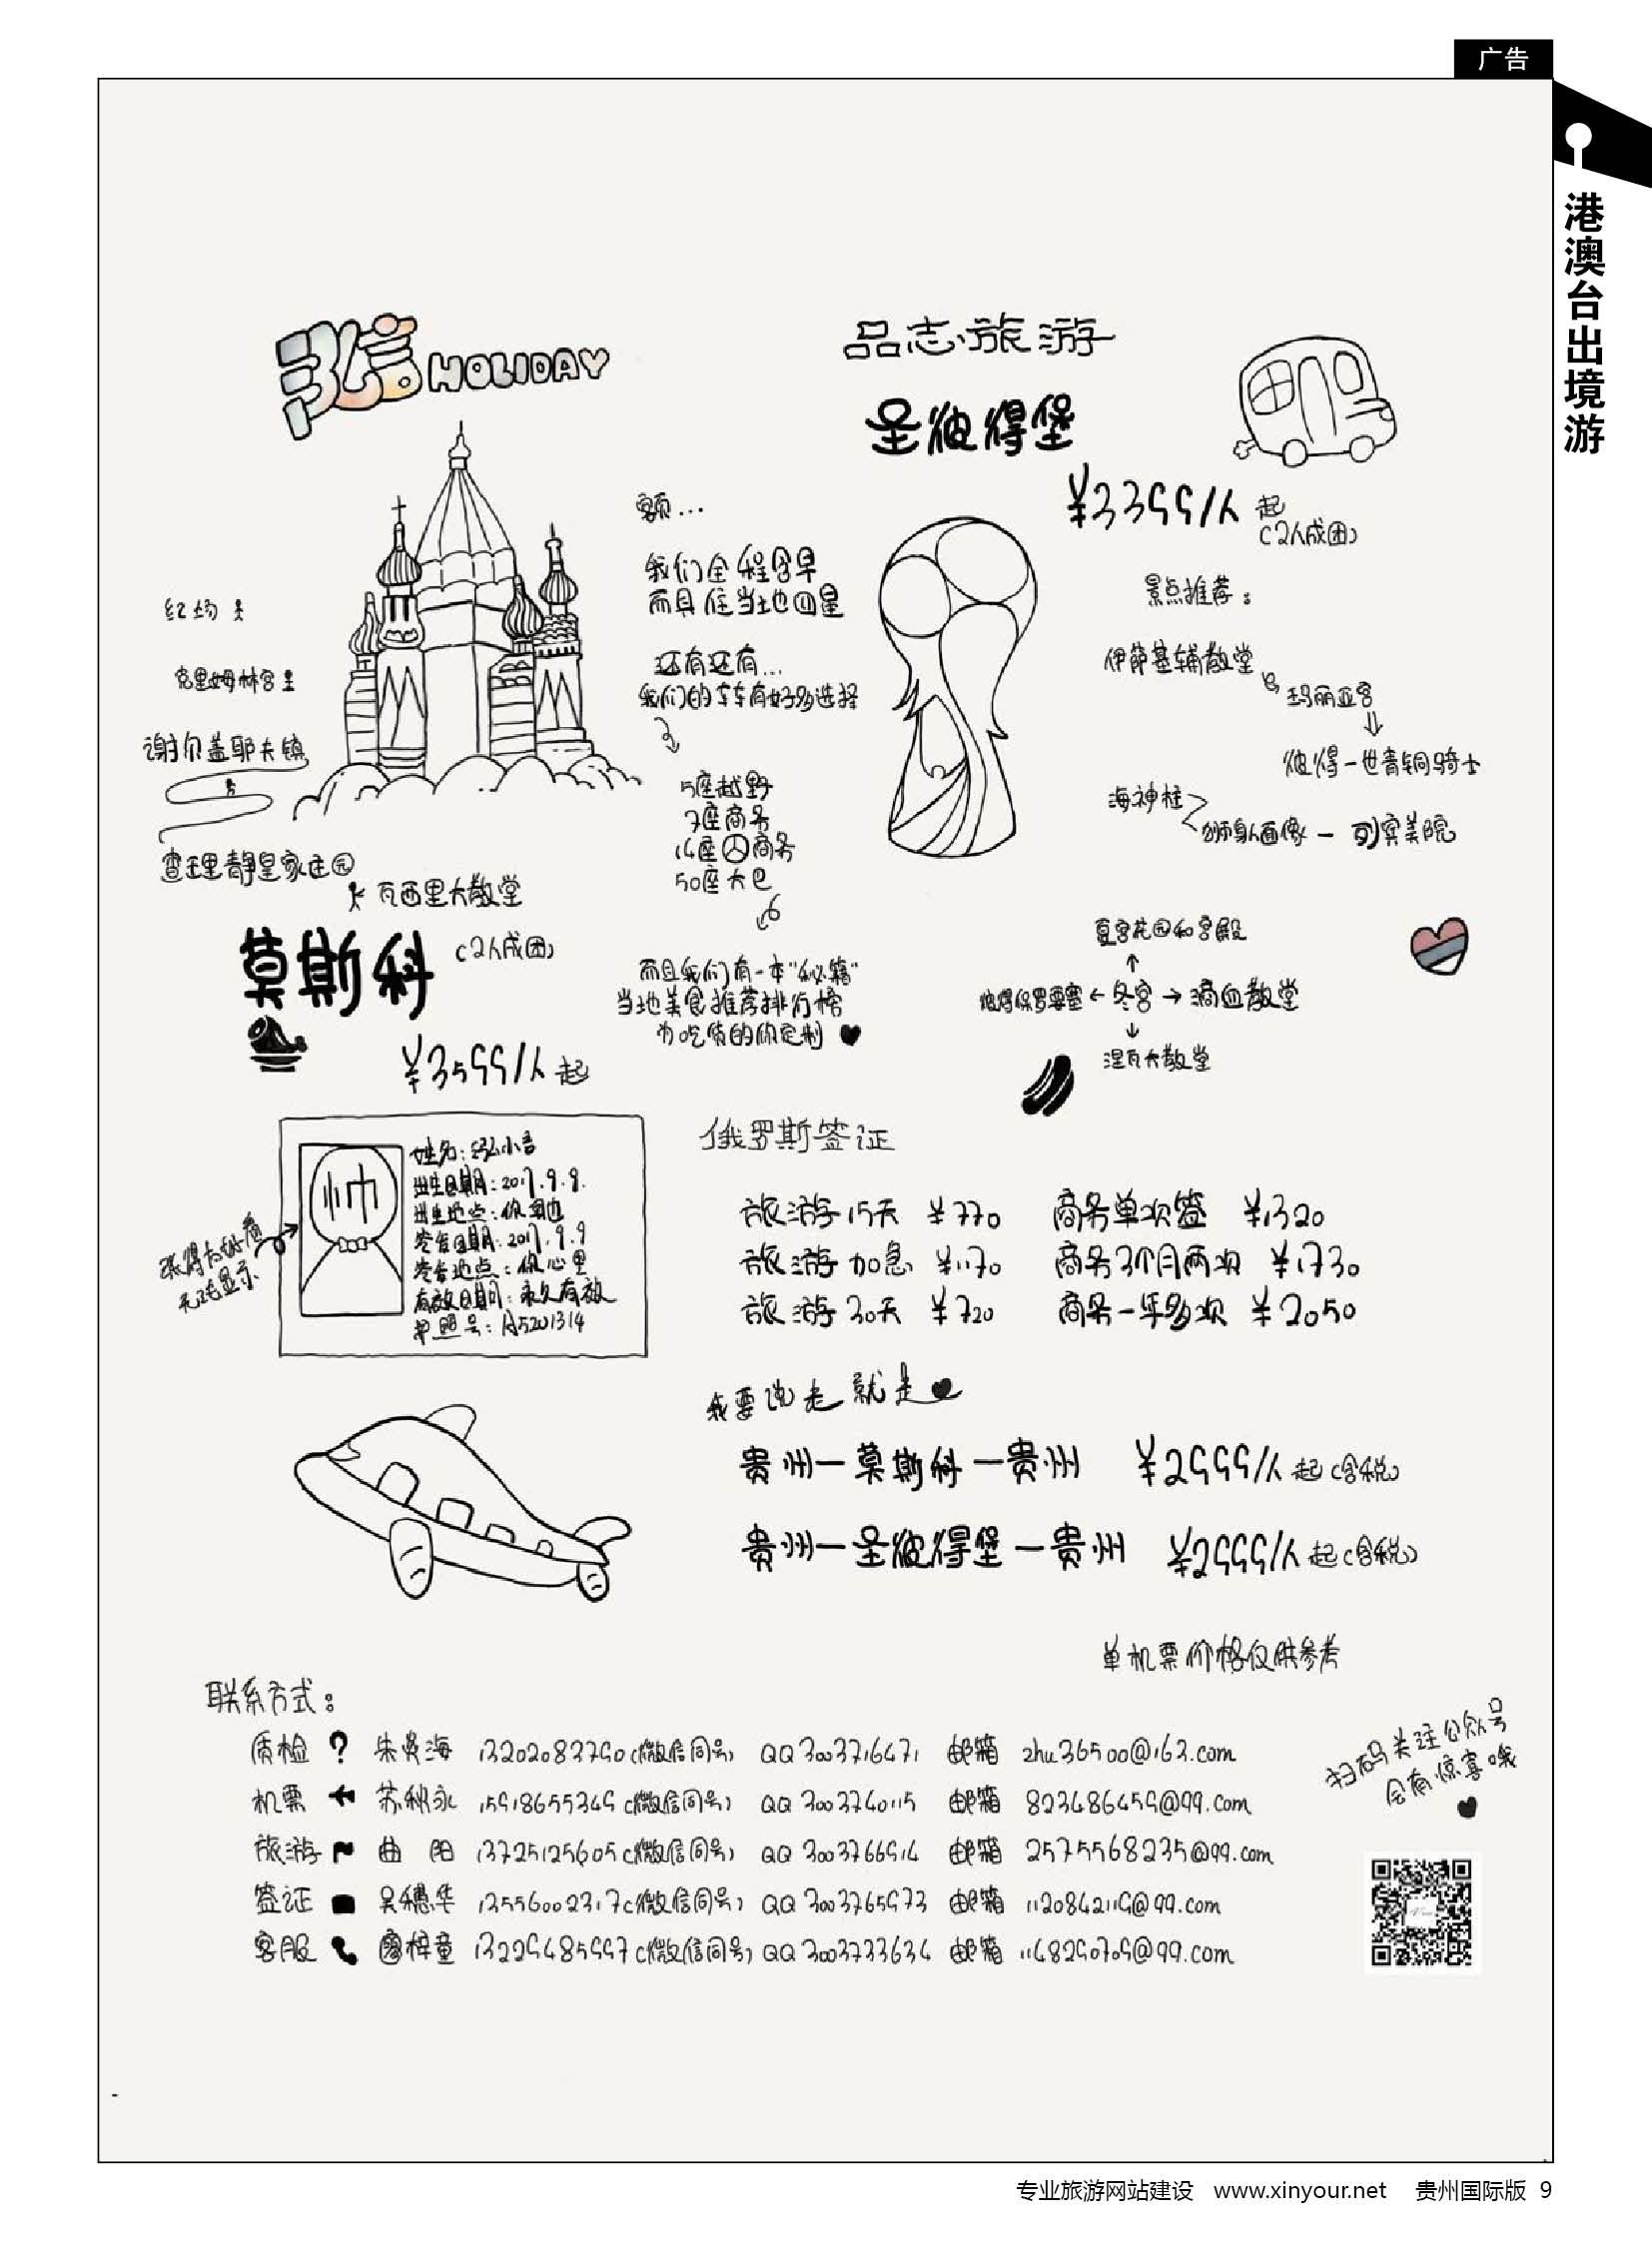 广告
港澳台出境游
弘信HOLIDAY
品志旅游
圣彼得堡
¥3399/人起
(2人成团)
额...
我们全程含早
而且住当地四星
还有还有...
我们的车车有好多选择
5座越野
7座商务
14座 商务
50座大巴
而且我们有一本“秘籍”
当地美食推荐排行榜
为吃货的你定制
红场
克里姆林宫
谢尔盖耶夫镇
查里静皇家庄园
瓦西里大教堂
莫斯科
(2人成团)
¥3599/人起
景点推荐:
伊萨基辅教堂
玛丽亚宫
彼得一世青铜骑士
海神柱
狮身人面像 — 列宾美院
夏宫花园和宫殿
彼得保罗要塞 ← 冬宫 → 滴血教堂
涅瓦大教堂
姓名:弘小信
出生日期:2017.9.9.
出生地点:你家里
签发日期:2017.9.9
签发地点:你心里
有效日期:永久有效
护照号:A5201314
帅
张得太好看
无法显示
俄罗斯签证
旅游15天 ¥770 商务单次签 ¥1320
旅游加急 ¥1170 商务3个月两次 ¥1730
旅游30天 ¥720 商务一年多次 ¥2050
我要说走就走
贵州—莫斯科—贵州 ¥2999/人起(含税)
贵州—圣彼得堡—贵州 ¥2999/人起(含税)
单机票价格仅供参考
联系方式:
质检 ? 朱贤海 13202083790(微信同号) QQ 3003716471 邮箱 zhu36500@163.com
机票 苏秋永 15918655349(微信同号) QQ 3003740115 邮箱 823486459@qq.com
旅游 曲阳 13725125605(微信同号) QQ 3003766914 邮箱 2575568235@qq.com
签证 吴穗华 13556002317(微信同号) QQ 3003765973 邮箱 1120842119@qq.com
客服 梓童 13229485997(微信同号) QQ 3003733634 邮箱 1148290709@qq.com
扫码关注公众号
会有惊喜哦
专业旅游网站建设 www.xinyour.net 贵州国际版 9